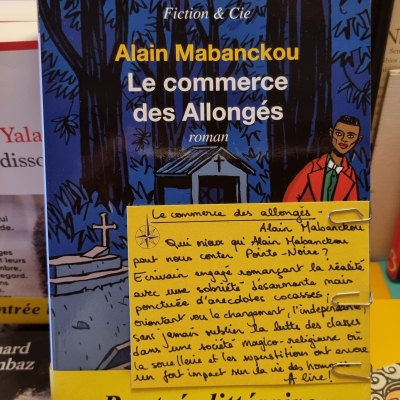 Fiction & Cie
Alain Mabanckou
Le commerce
des Allongés
roman
Yala
disso
Le commerce des allongés -
Alain Mabanckou
Qui mieux qu'Alain Mabanckou
pour nous conter Pointe-Noire?
Ecrivain engagé romançant la réalité
avec une sobriété désarmante mais
ponctuée d'anecdotes cocasses;
orientant vers le changement, l'indépendance
sans jamais oublier la lutte des classes
dans une société magico-religieuse où
la sorcellerie et les superstitions ont encore
un fort impact sur la vie des
A lire!
ui
de
ges
leurs
mbre,
regard.
et
ntrée
nard
mbaz